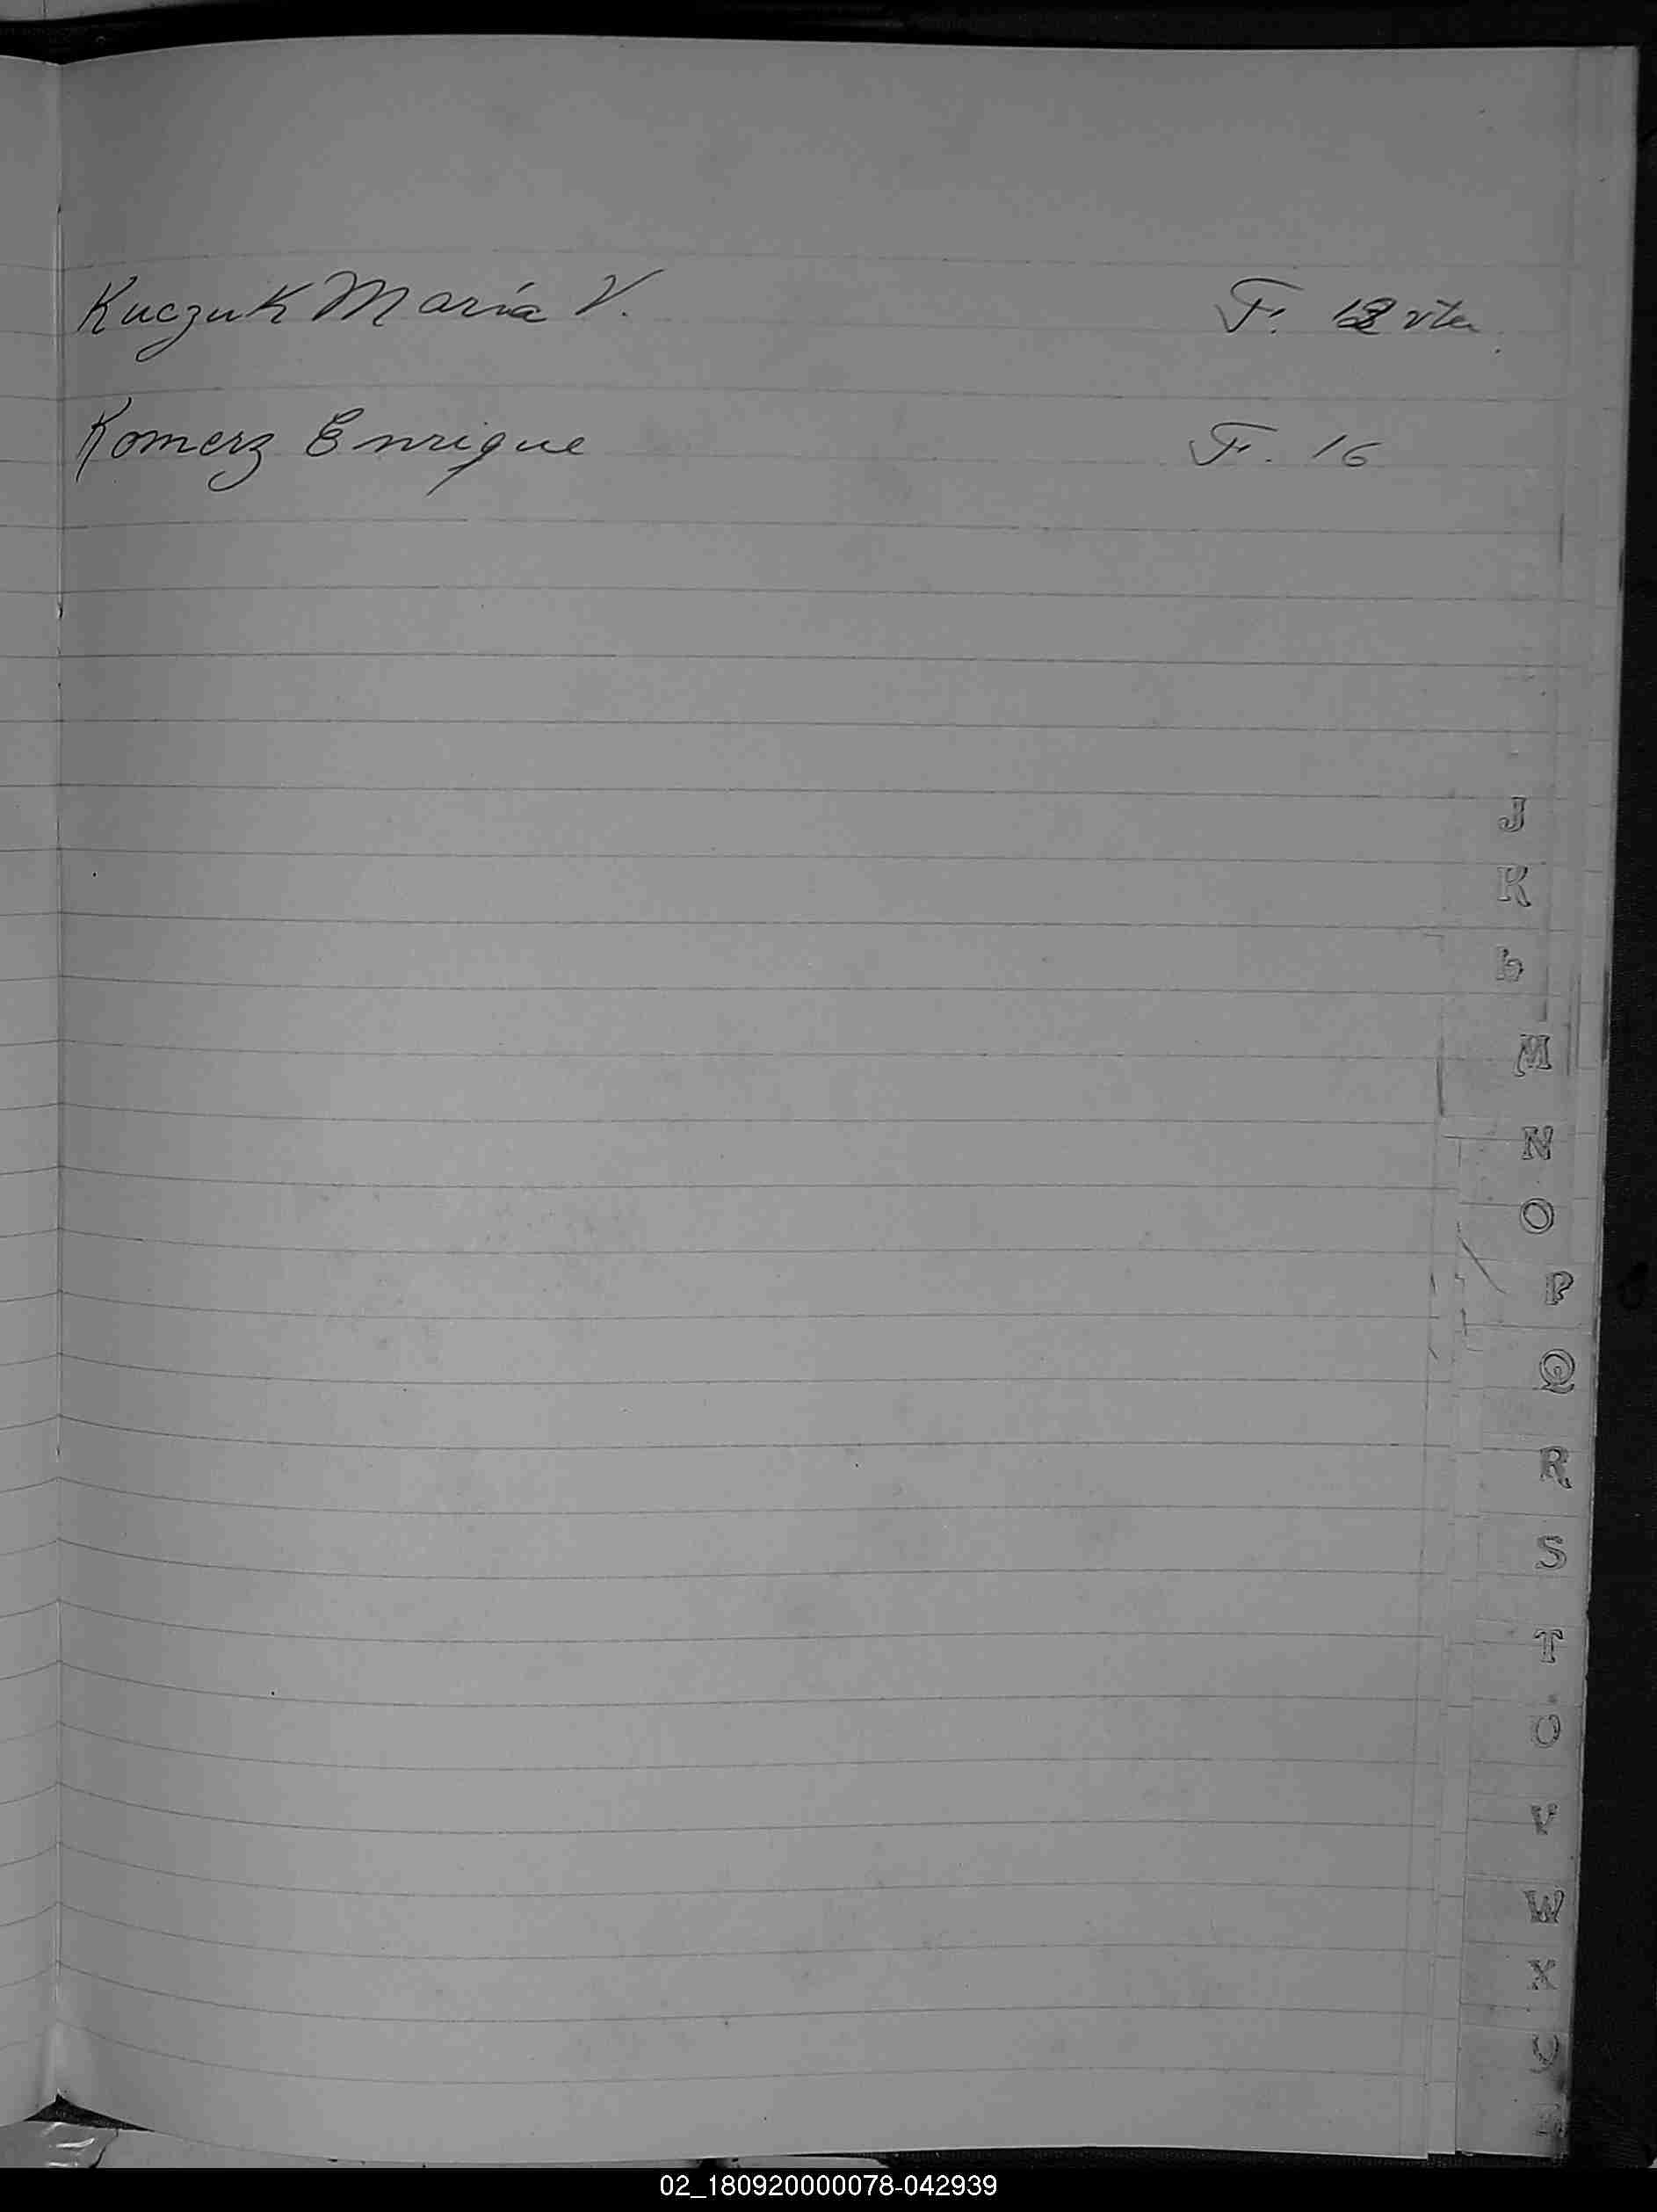 Kuczuk María V. F. 12 vta
Komerz Enrique F. 16
J
K
L
M
N
O
P
Q
R
S
T
U
V
W
X
02_180920000078-042939